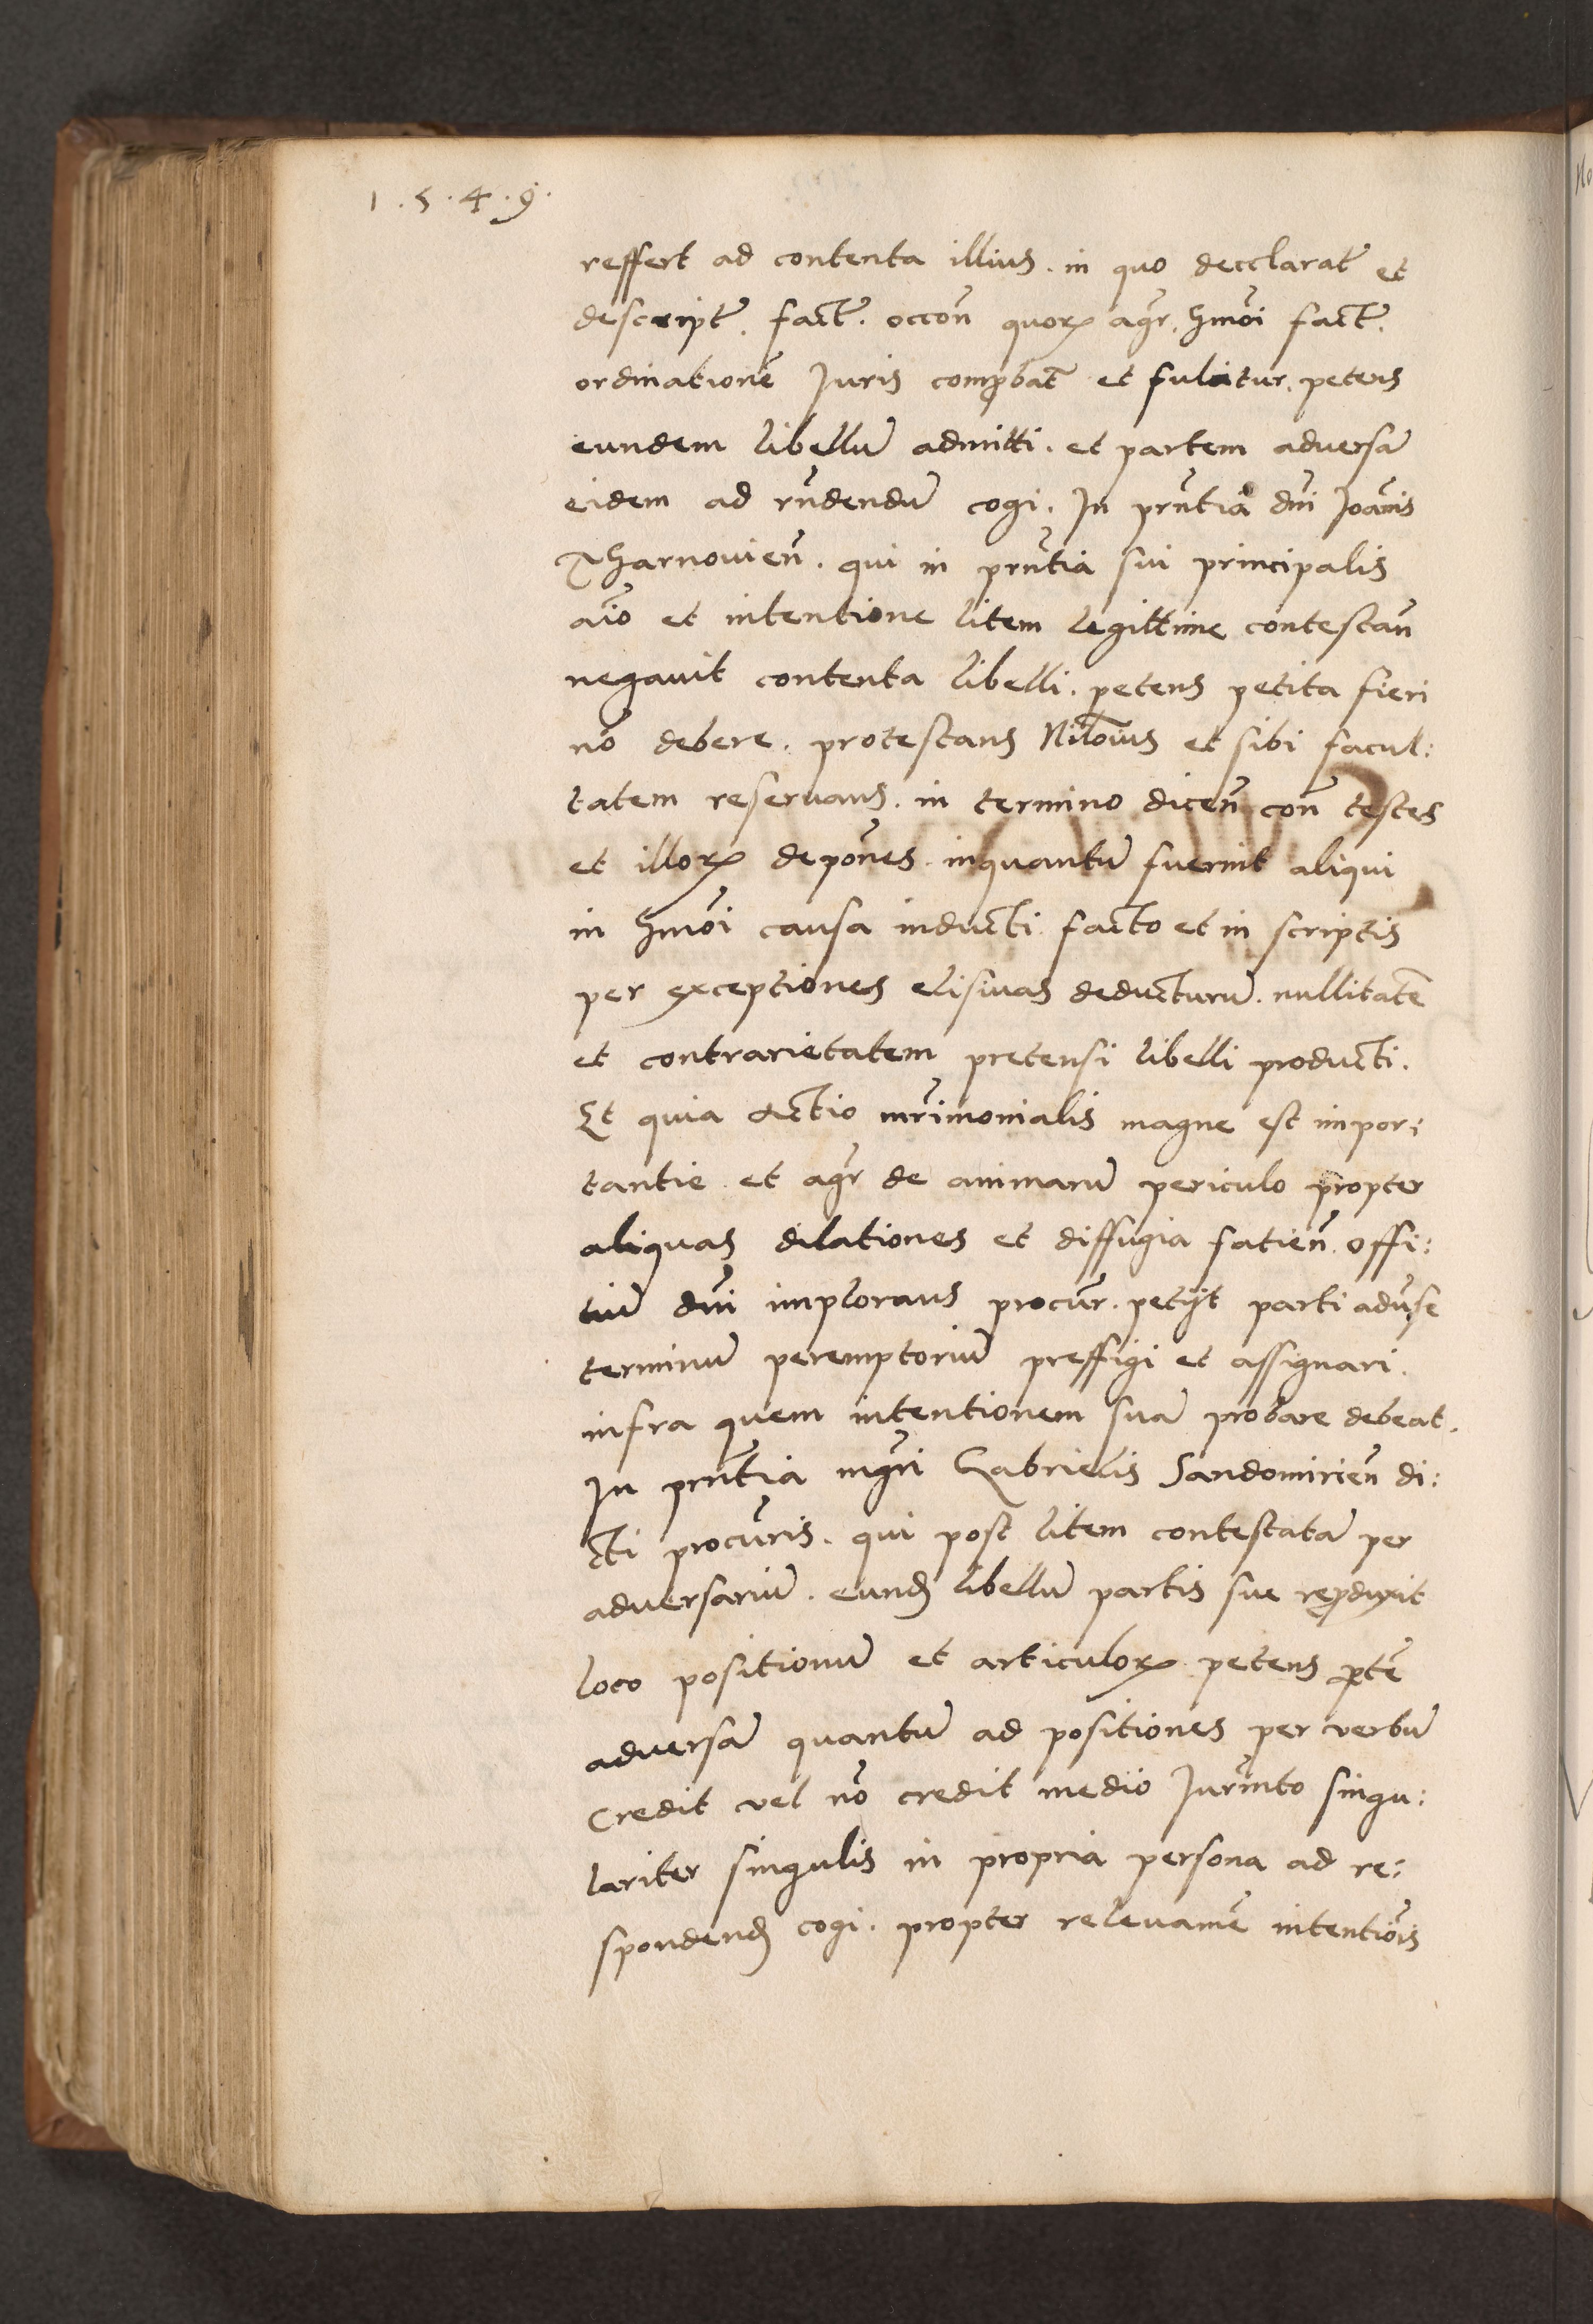 1.5.4.9.
reffert ad contenta illius. in quo decclarat̃ et
descript̃. fact̃. occoñ quoꝝ agr̃. hmõi fact̃.
ordinationẽ Juris comꝓbat̃ et fulcitur. petens
eundem libellũ admitti. et partem adversã
eidem ad rñdendũ cogi. In prñtia dñi Joãnis
Tharnovieñ. qui in prñtia sui principalis
aĩo et intentione litem legittime contestañ
negavit contenta libelli. petens petita fieri
nõ debere. protestans Nilõius et sibi facul:
tatem reservans. in termino diceñ coñ testes
et illoꝝ depõnes. inquantũ fuerint aliqui
in hmõi causa inducti facto et in scriptis
per exceptiones elisivas deducturũ. nullitatẽ
et contrarietatem pretensi libelli producti.
Et quia actio mr̃imonialis magne est impor:
tantie et agr̃ de animarũ periculo propter
aliquas dilationes et diffugia fatieñ. offi:
tiũ dñi implorans procur̃. petijt parti adṽse
terminũ peremptoriũ preffigi et assignari.
infra quem intentionem suã probare debeat.
In prñtia mgr̃i Gabrielis Sandomirieñ di:
cti procur̃is. qui post litem contestatã per
adversariũ. eunđ libellũ partis sue reꝓduxit
loco positionũ et articuloꝝ petens ꝑtẽ
adversã quantũ ad positiones per verbũ
Credit vel nõ credit medio Jur̃mto singu:
lariter singulis in propria persona ad re:
spondenđ cogi. propter relevamẽ intentiõis